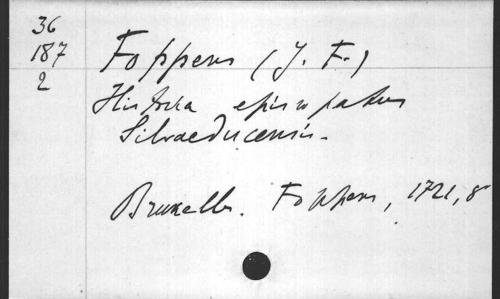 36
187
2
Foppens (J. F.)
Historia episcopatus
Silvaeducensis.
Bruxelles. Foppens, 1721, 8°